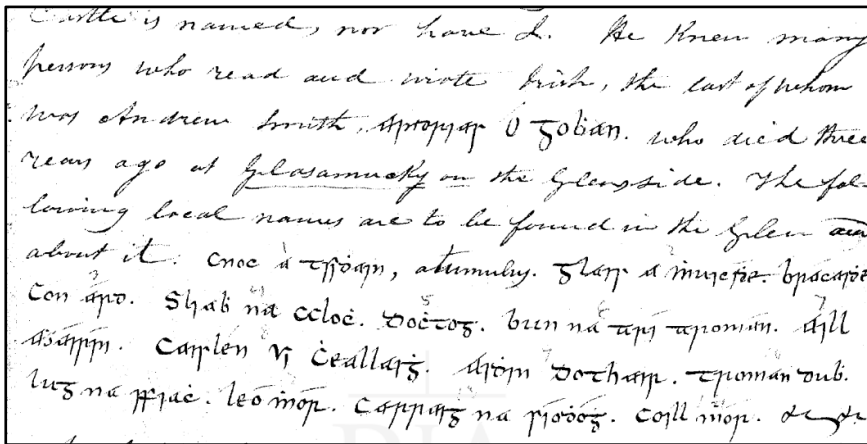 Castle is named, nor have I. He knew many
persons who read and wrote Irish, the last of whom
was Andrew Smith, O Goban. who died three
years ago at Glasamucky on the Glenside. The fol-
lowing local names are to be found in the Glen and
about it. Cnoc a tsída​in, a tumulus. Glais a ṁuicfie.
Con ard. Sliab na ccloċ. Doċtog. bun na trí troman. Aill
Caislen Ui Ċeallaiġ. Dothair. troman dub.
lug na ffiaċ. leo ṁór. Carraig na fíodóg. Coill ṁór. &c &c
RIA